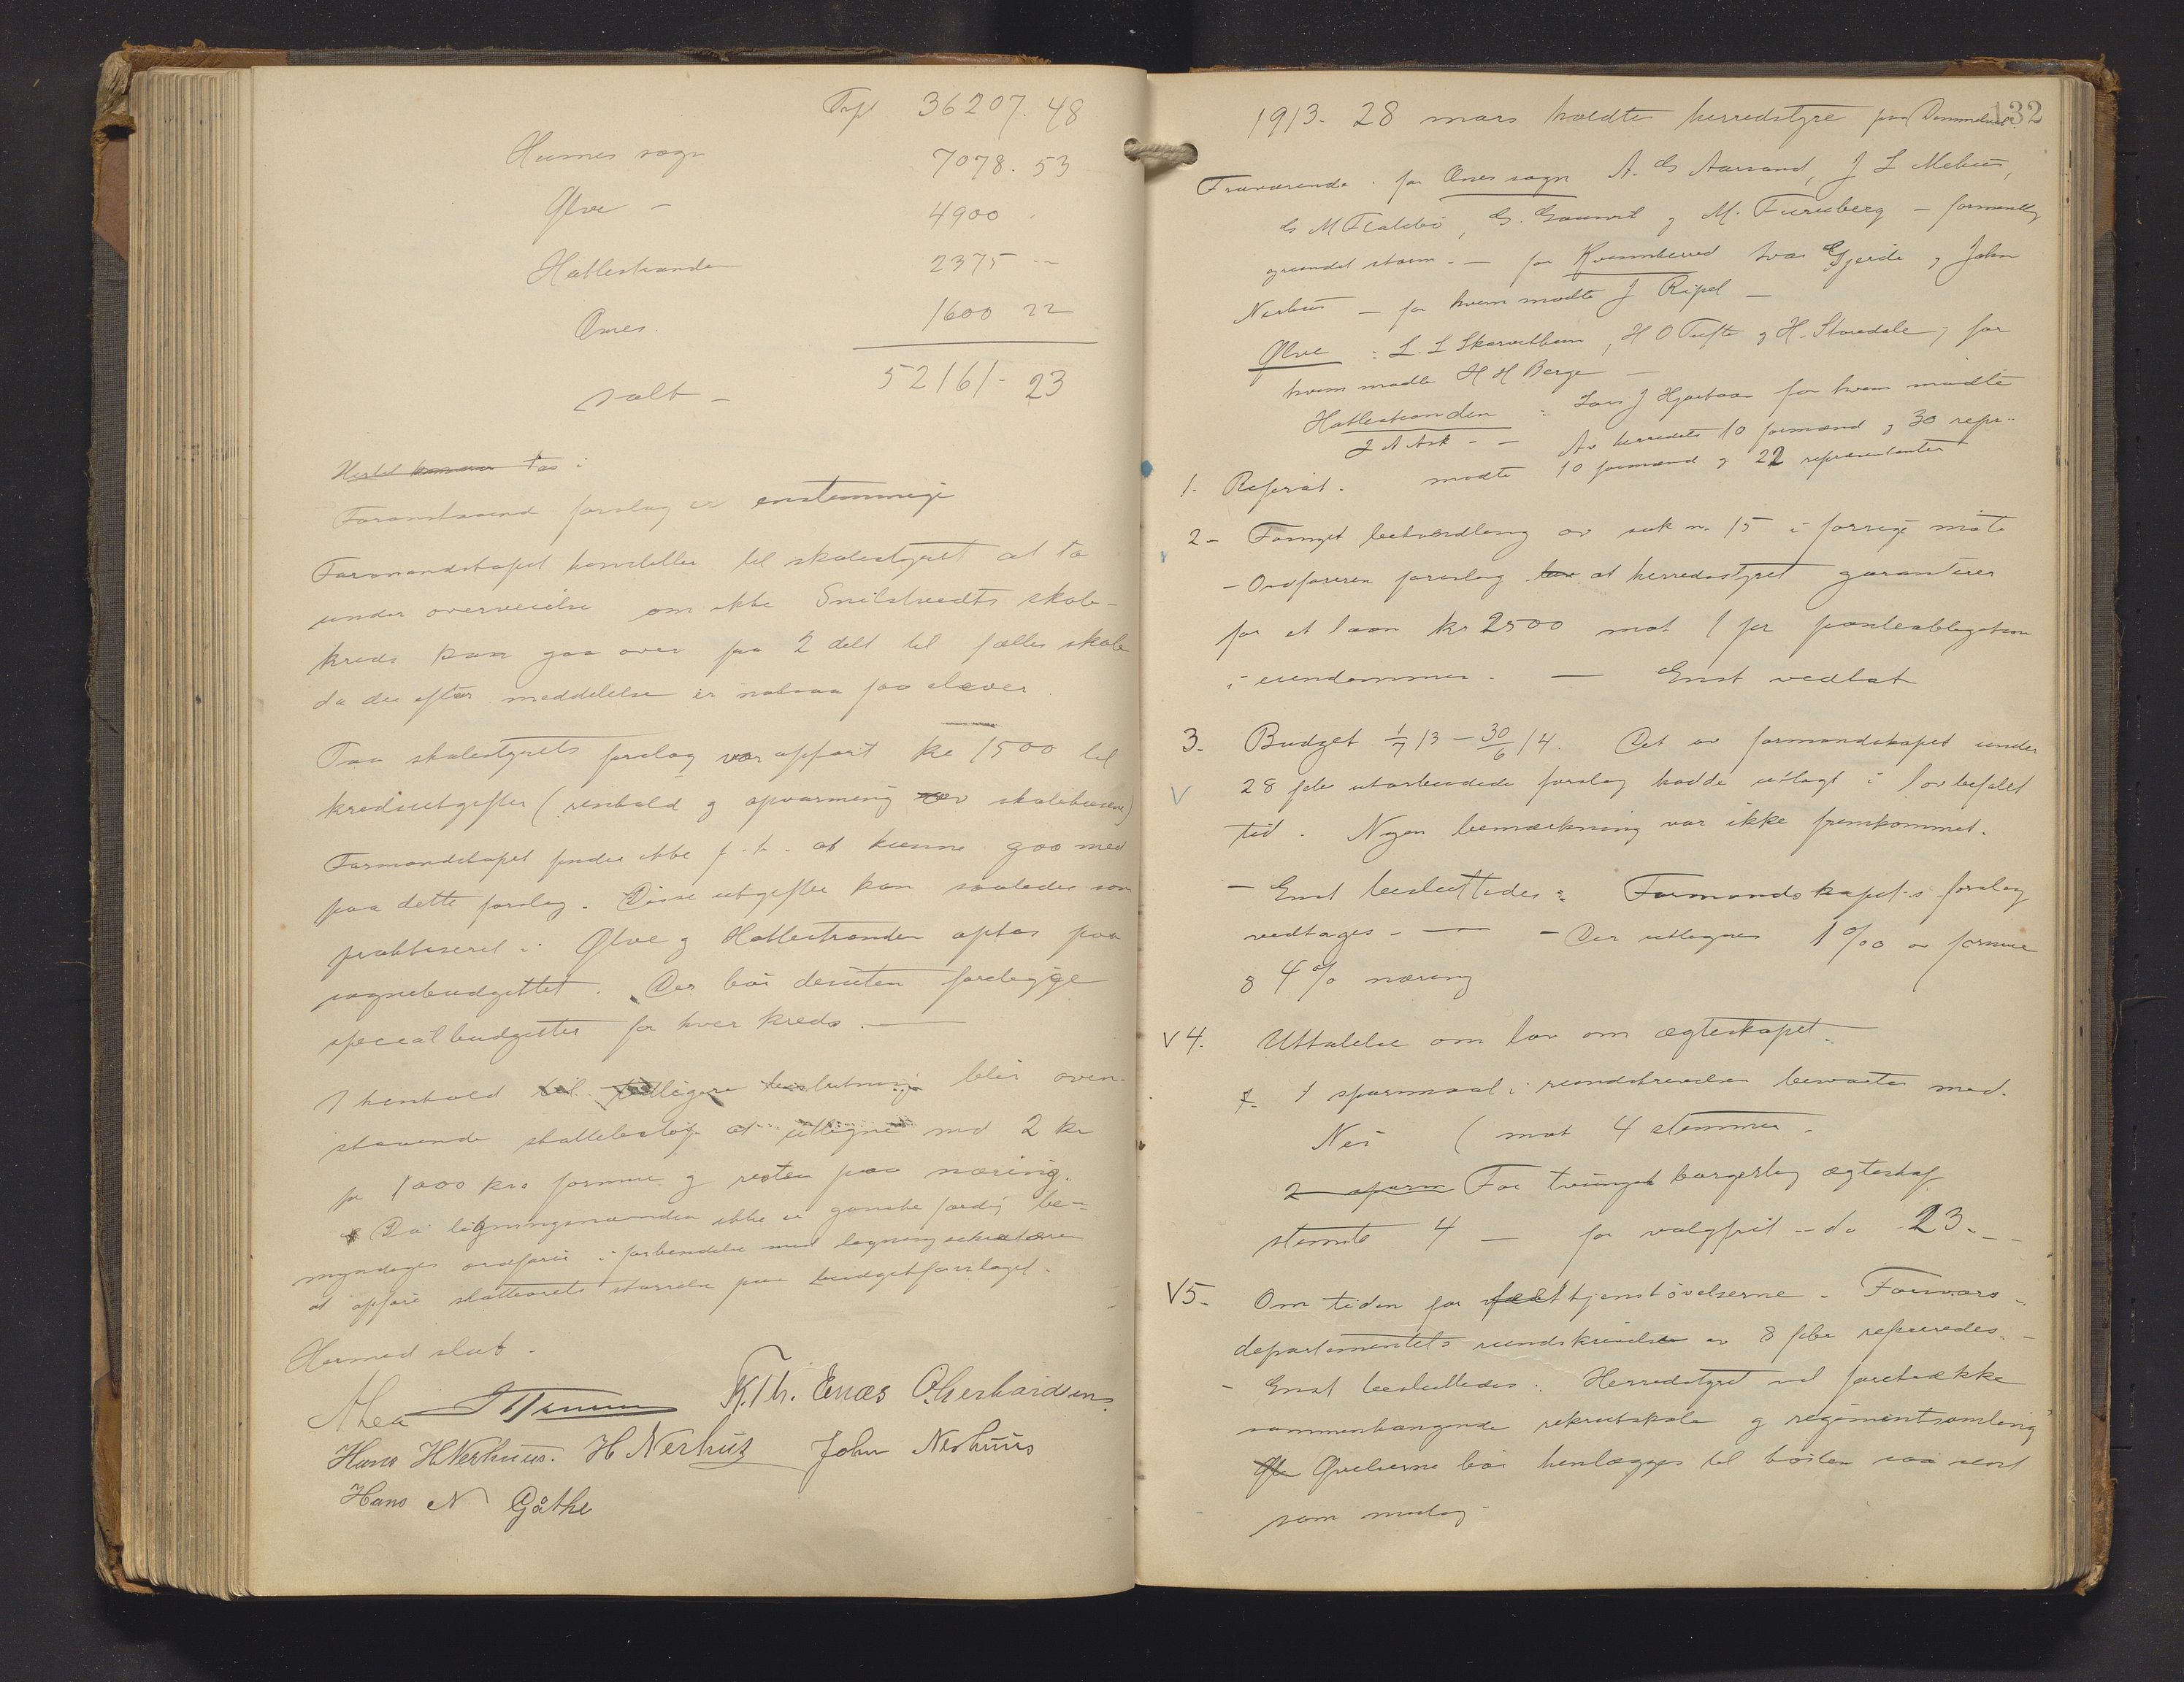 Trspt 36207.48
Husnes sogn 7078.53
Ølve — 4900 -
Hatlestranden 2375 --
Ænes. 1600 22
salt — 52161-23
Foranstaaend forslag er enstemmige
Formandskapet henstiller til skolestyret at ta
under overveielse om ikke Snilstvedts skole-
kreds kan gaa over fra 2 delt til fælles skole
da der efter meddelelse er nokaa faa elever.
Paa skolestyrets forslag var opført kr 1500 til
kredsutgifter (renhold og opvarming av skolehusene)
Formandskapet finder ikke p.t. at kunne gaa med
paa dette forslag. Disse utgifter kan saaledes som
praktiseret i Ølve og Hatlestranden optas paa
sognebudgettet. Der bør desuten foreligge
specialbudgetter for hver kreds. —
I henhold til tidligere beslutning blir oven-
staaende skattebeløp at utligne med 2 kr
pr 1000 krs formue og resten paa næring.
Da ligningsnævnden ikke er ganske færdig be-
myndiges ordfører i forbindelse med ligningssekretæren
at opføre skatteørets størrelse paa budgetforslaget.
Hermed slut.
K. Th. Enæs O. Gerhardsen
Hans H Nerhuus. H Nerhuz John Nerhuus
Hans N Gåthe
132
1913. 28 mars holdtes herredstyre paa
Fraværende: for Ænes sogn A. G. Aarsand, J L Mehus,
G M Flatebø, G. Gaunit og M. Furuberg — formentlig
grundet storm. — for Kvinnherred Ivar Gjerde og John
Nerhus — for hvem mødte J Ripel —
Ølve: L. L Skarvethun, H O Tufte og H. Storedale, for
hvem mødte H H Berge —
Hatlestranden: Lars J Hjartaas for hvem mødte
J A Ask. — Av herredets 10 formænd og 30 repr..
1. Referat. mødte 10 formænd og 22 repræsentanter
2- Fornyet behandling av sak nr. 15 i forrige møte
- Ordføreren foreslog at herredstyret garanterer
for et laan kr 2500 mot 1 pr panteobligation
i eiendommen. — Enst vedtat
3. Budget 1/7 13 — 30/6 14. Det av formandskapet under
V 28 febr utarbeidede forslag hadde utlagt i lovbefalet
tid. Nogen bemærkning var ikke fremkommet.
- Enst besluttedes: Formandskapets forslag
vedtages. — - Der utlignes 1 ‰ av formue
& 4 % næring
V 4. Uttalelse om lov om ægteskapet.
1 spørsmaal i rundskrivelsen besvartes med.
Nei (mot 4 stemmer.
2 spørsm For tvunget borgerlig ægteskap
stemte 4 — for valgfrit - do 23. —
V5. Om tiden for felttjenstøvelserne. Forsvars-
departementets rundskrivelse av 8 febr refereredes. —
- Enst besluttedes: Herredstyret vil foretrække
sammenhængende rekrutskole og regimentsamling
Øvelserne bør henlægges til høsten saa sent
som mulig